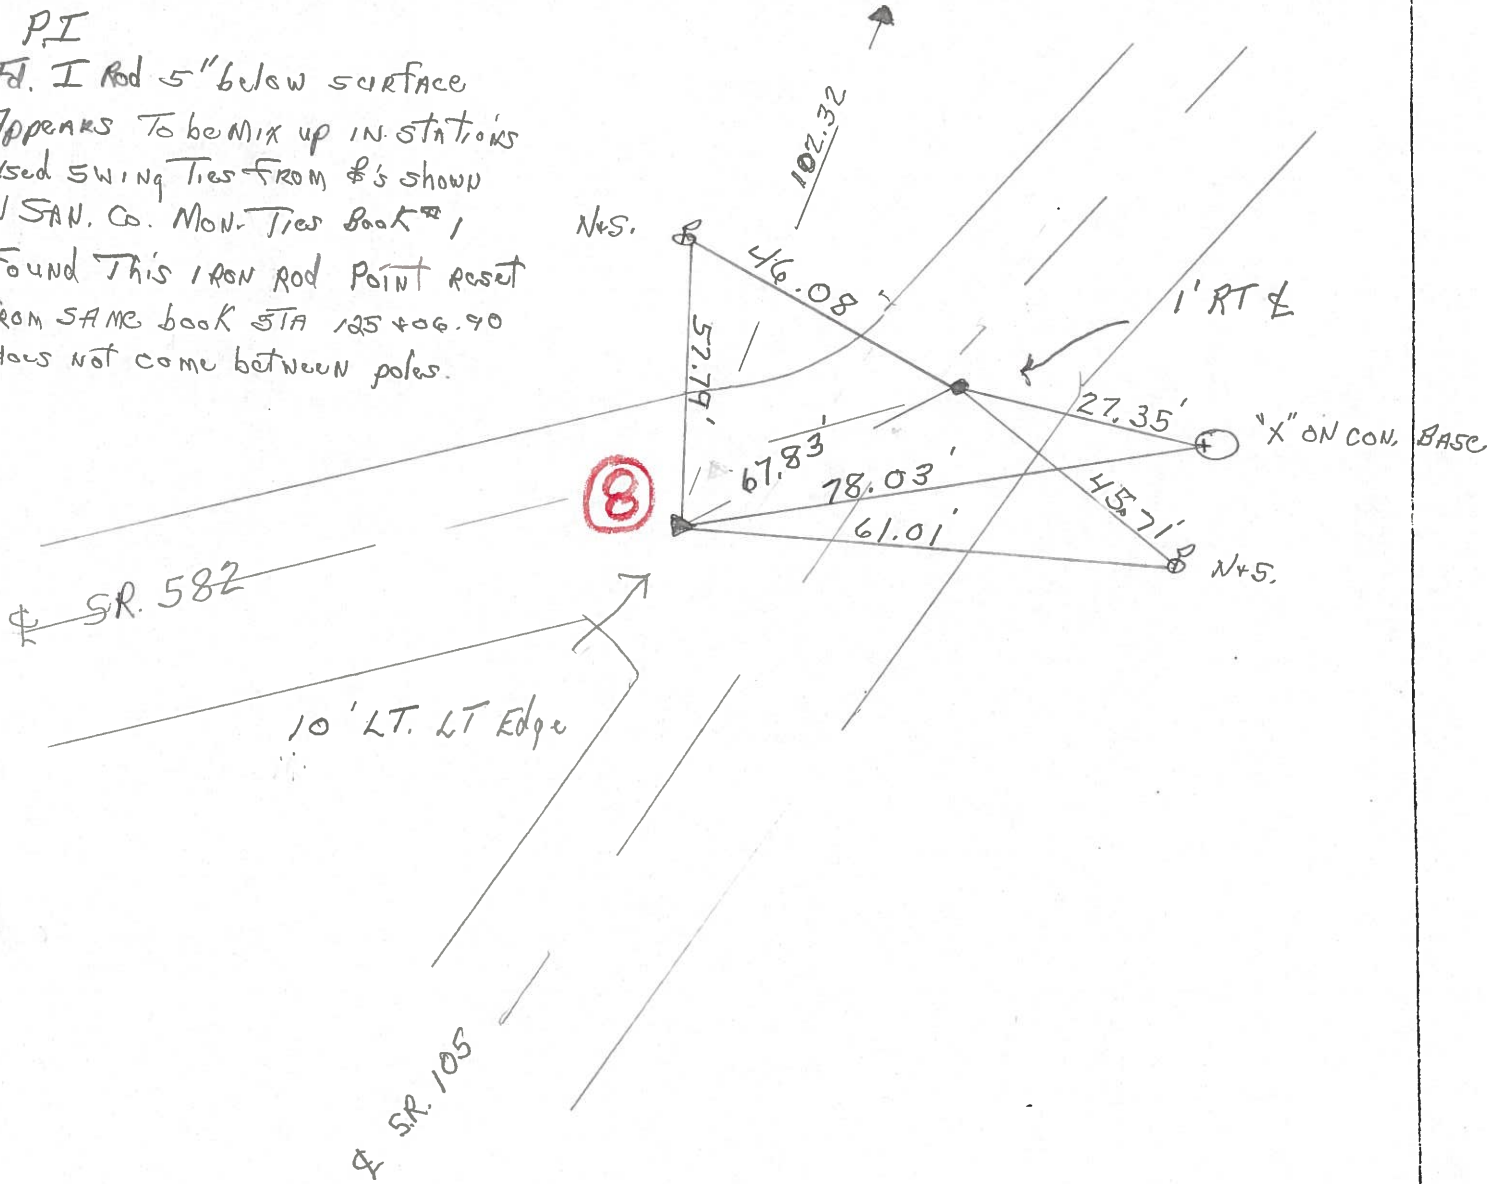 P.I
Fd. I Rod 5" below surface
Appears To be Mix up IN Stations
Used Swing Ties From ⅊'s shown
IN SAN. Co. Mon. Ties Book #1
Found This IRON Rod Point Reset
From SAME book STA 125+06.90
Does Not come between poles.
102.32
N+S.
46.08'
57.79'
1' RT ℄
27.35'
"X" ON CON. BASE
67.83'
78.03'
45.71'
61.01'
N+S.
8
℄ S.R. 582
10' LT. LT Edge
℄ S.R. 105